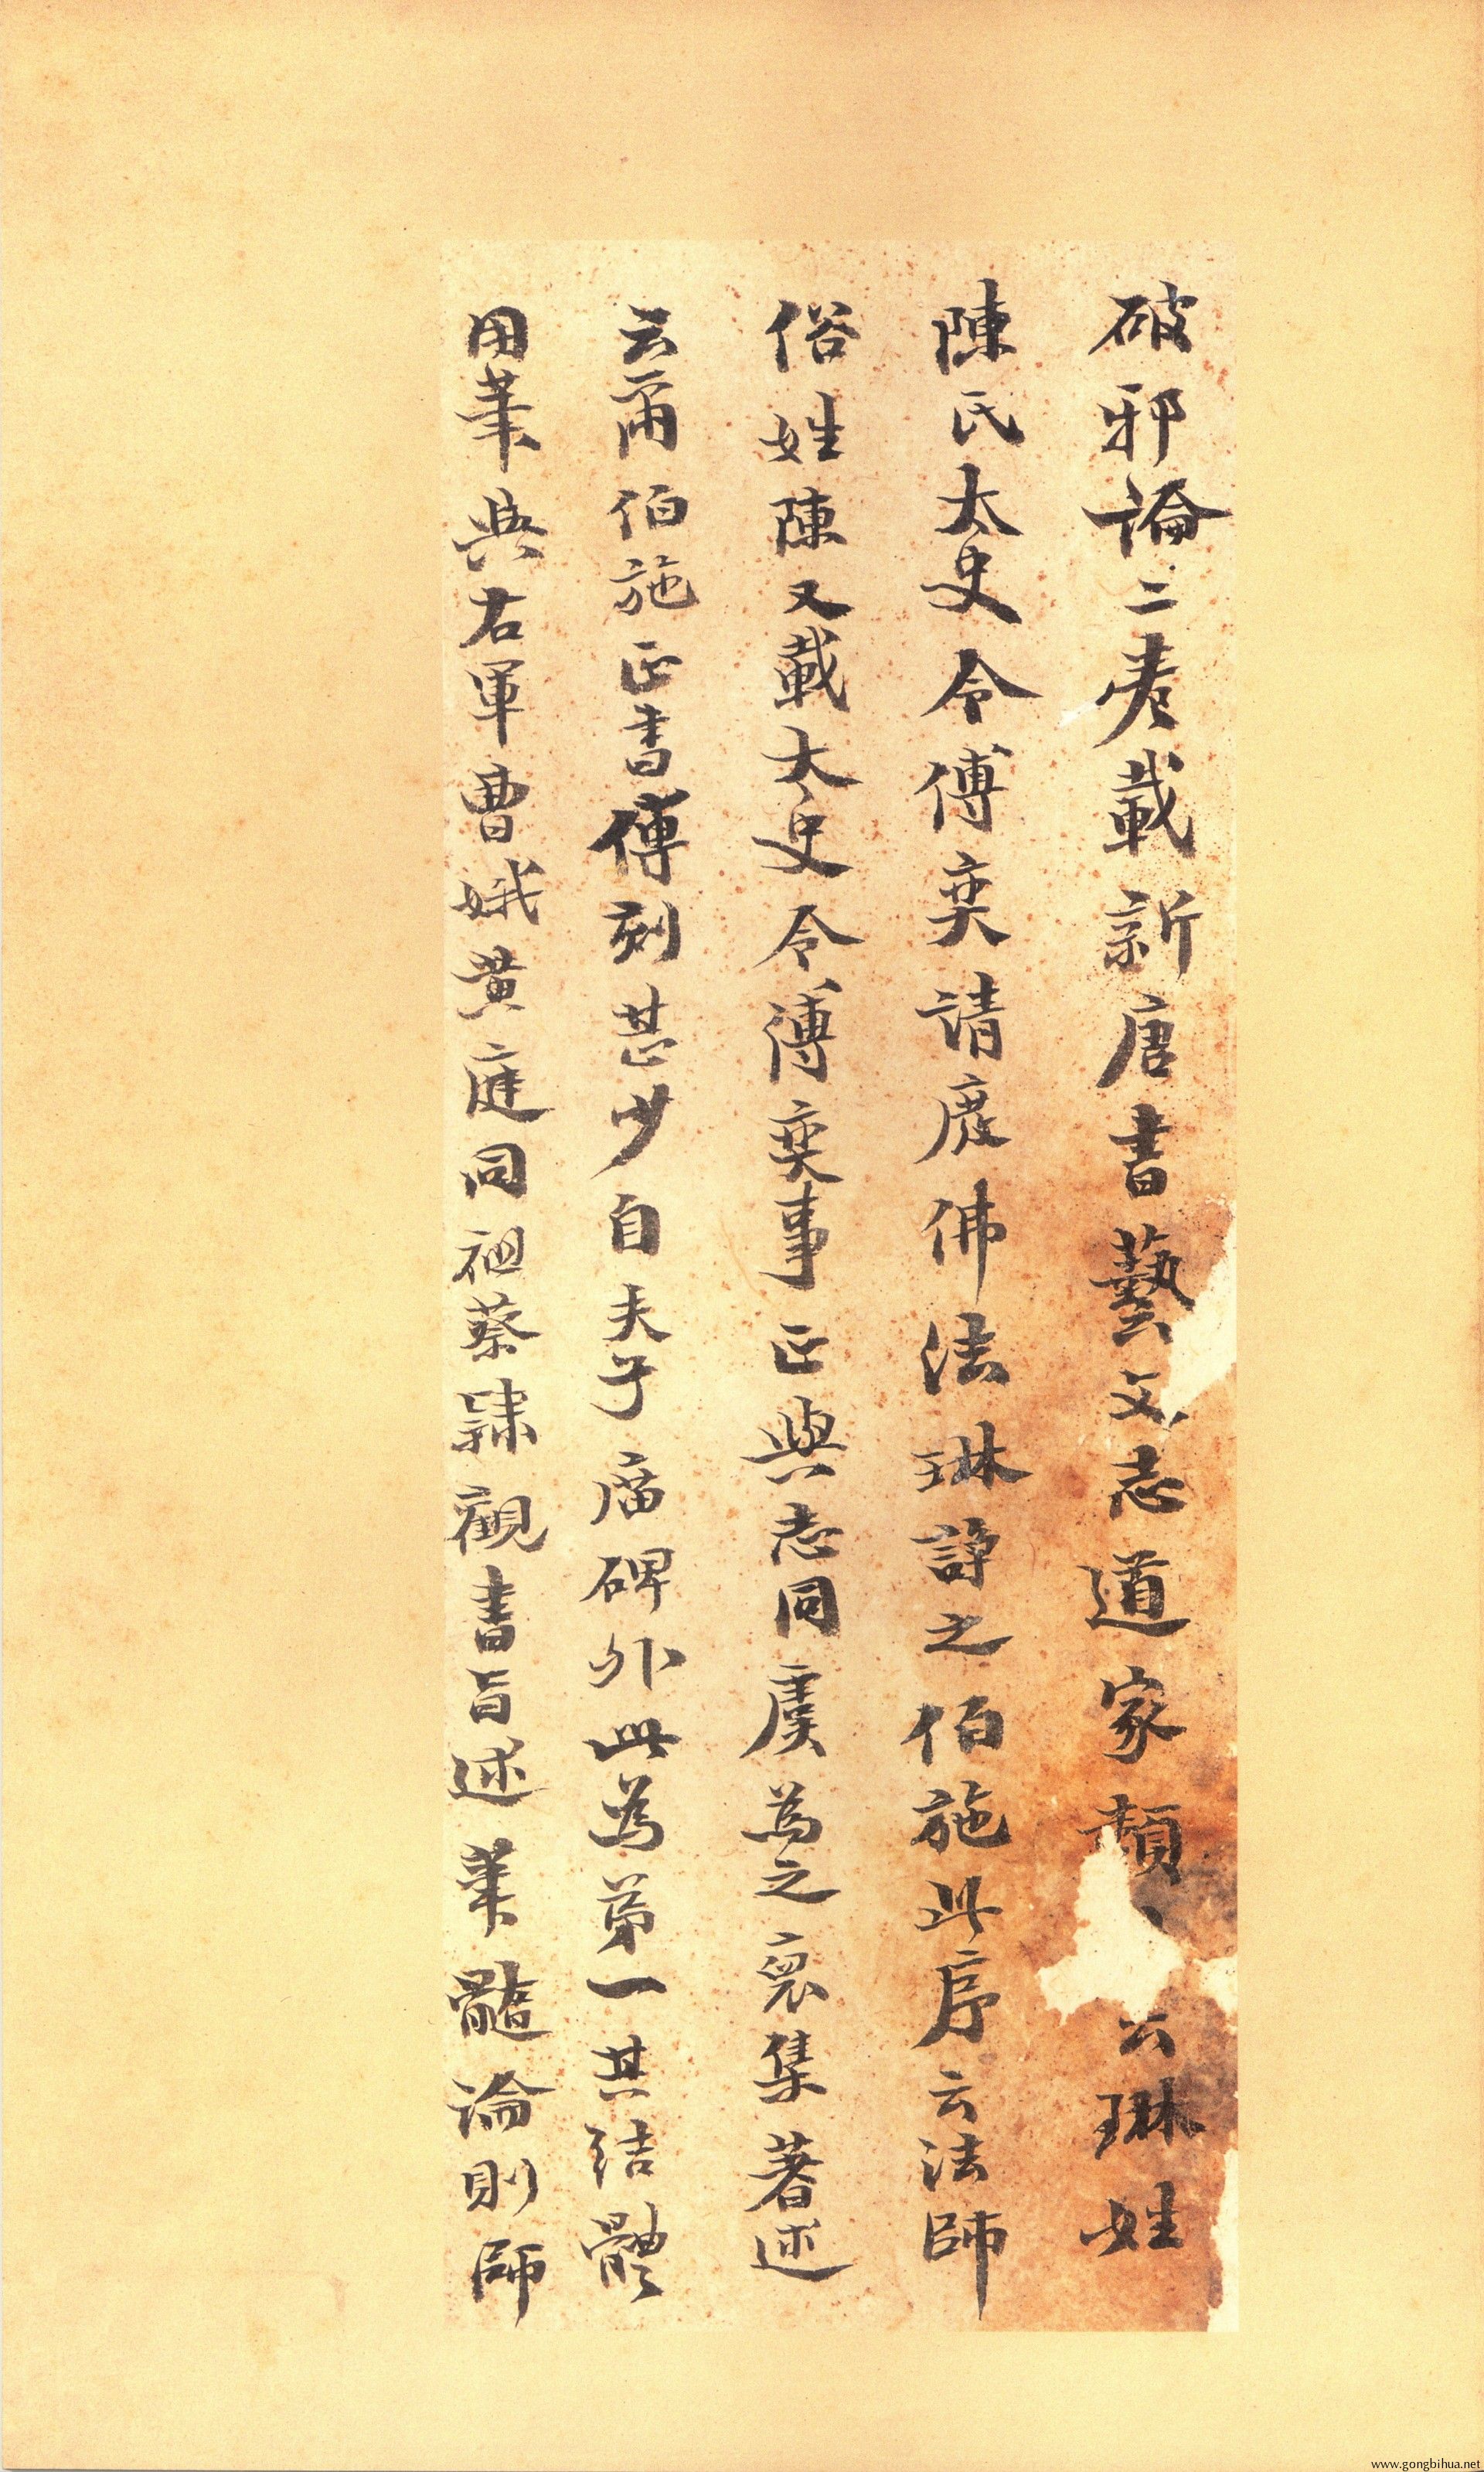 破邪論二卷載新唐書藝文志道家類公琳姓
陳氏太史令傅奕請廢佛法琳諍之伯施此序云法師
俗姓陳又載太史令傅奕事正與志同虞為之裒集著述
云爾伯施正書傳刻甚少自夫子廟碑外此為第一其結體
用筆與右軍曹娥黃庭同祖蔡隸觀書旨述筆髓論則師
www.gongbihua.net